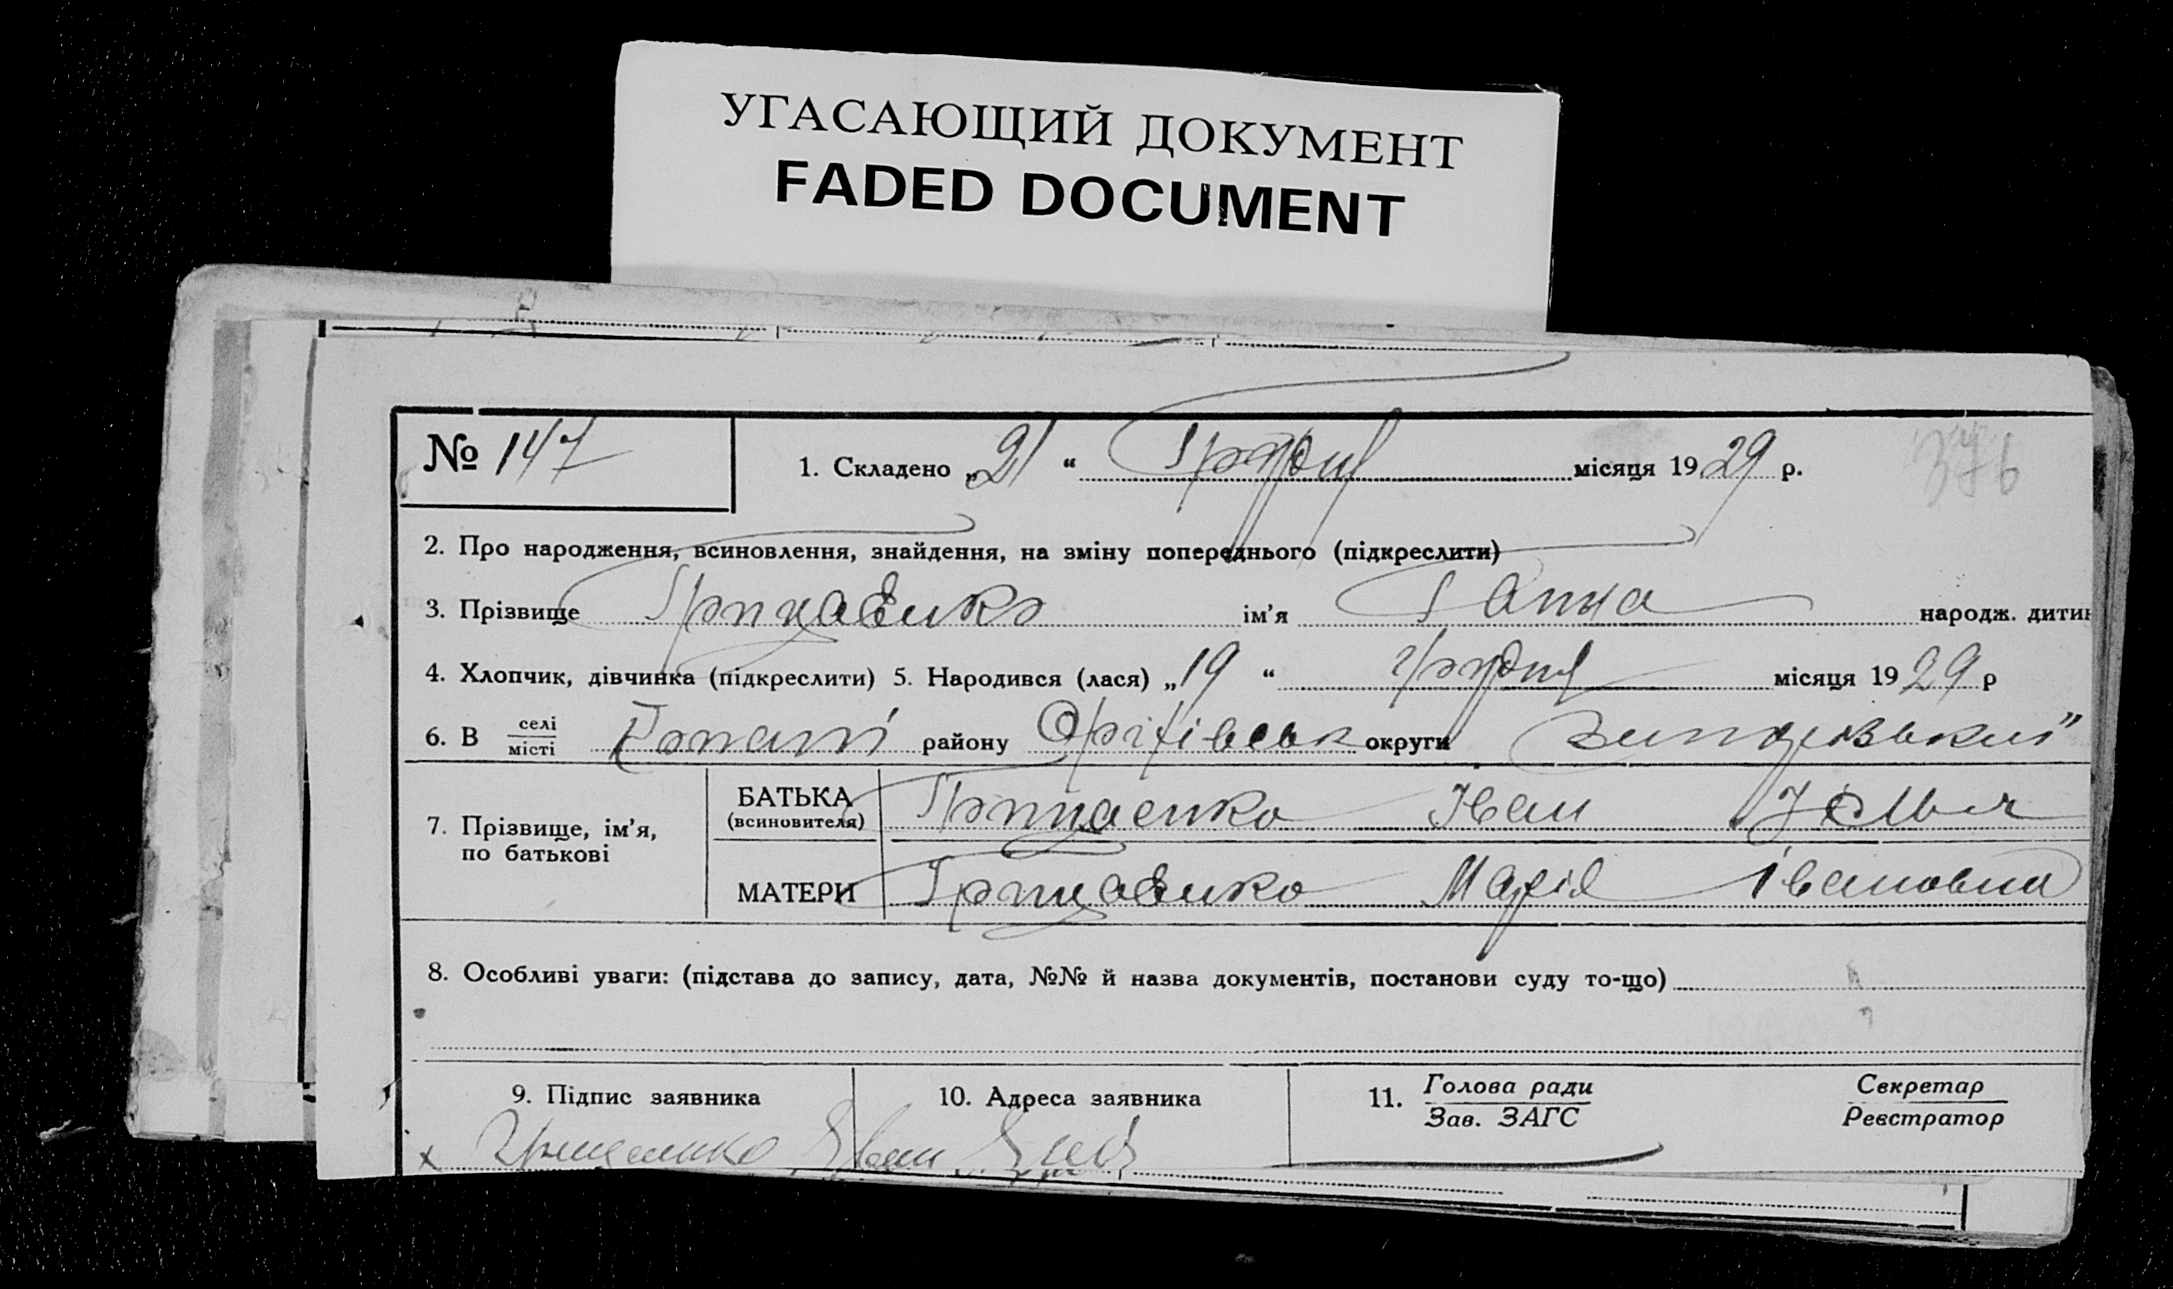 УГАСАЮЩИЙ ДОКУМЕНТ
FADED DOCUMENT
№ 147
1. Складено „21“ Грудня місяця 1929 р.
376
2. Про народження, всиновлення, знайдення, на зміну попереднього (підкреслити)
3. Прізвище Грищаенко ім'я Ганна народж. дити
4. Хлопчик, дівчинка (підкреслити) 5. Народився (лася) „19“ грудня місяця 1929 р
6. В селі/місті району Оріхівськ округи
7. Прізвище, ім'я, по батькові
БАТЬКА (всиновителя) Грищаенко Іван
МАТЕРИ Грищаенко Марія Івановна
8. Особливі уваги: (підстава до запису, дата, №№ й назва документів, постанови суду то-що)
9. Підпис заявника
10. Адреса заявника
11. Голова ради / Зав. ЗАГС
Секретар / Реєстратор